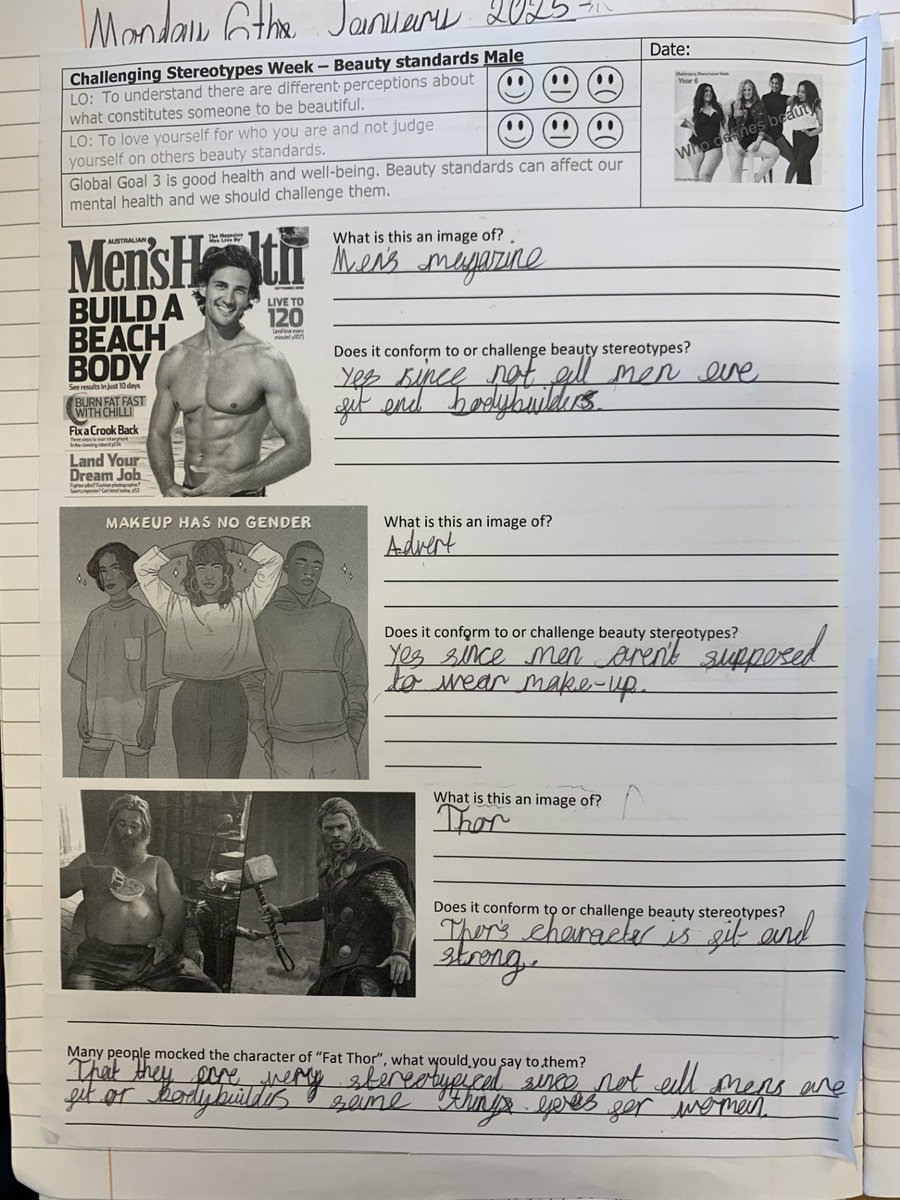 Monday 6th January 2025
Challenging Stereotypes Week – Beauty standards Male
LO: To understand there are different perceptions about
what constitutes someone to be beautiful.
LO: To love yourself for who you are and not judge
yourself on others beauty standards.
Global Goal 3 is good health and well-being. Beauty standards can affect our
mental health and we should challenge them.
Date:
Challenging Stereotypes Week
Year 6
Who defines beauty
AUSTRALIAN
The Magazine
Men Live By
Men'sHealth
BUILD A
BEACH
BODY
See results in just 10 days
BURN FAT FAST
WITH CHILLI
Fix a Crook Back
Land Your
Dream Job
LIVE TO
120
(and love every
minute! p107)
What is this an image of?
Men's megazine
Does it conform to or challenge beauty stereotypes?
Yes since not all men are
fit and bodybuilders.
MAKEUP HAS NO GENDER
What is this an image of?
Advert
Does it conform to or challenge beauty stereotypes?
Yes since men aren't supposed
to wear make-up.
What is this an image of?
Thor
Does it conform to or challenge beauty stereotypes?
Thor's character is fit and
strong.
Many people mocked the character of "Fat Thor", what would you say to them?
That they are very stereotypical since not all mens are
fit or bodybuilders same things goes for women.